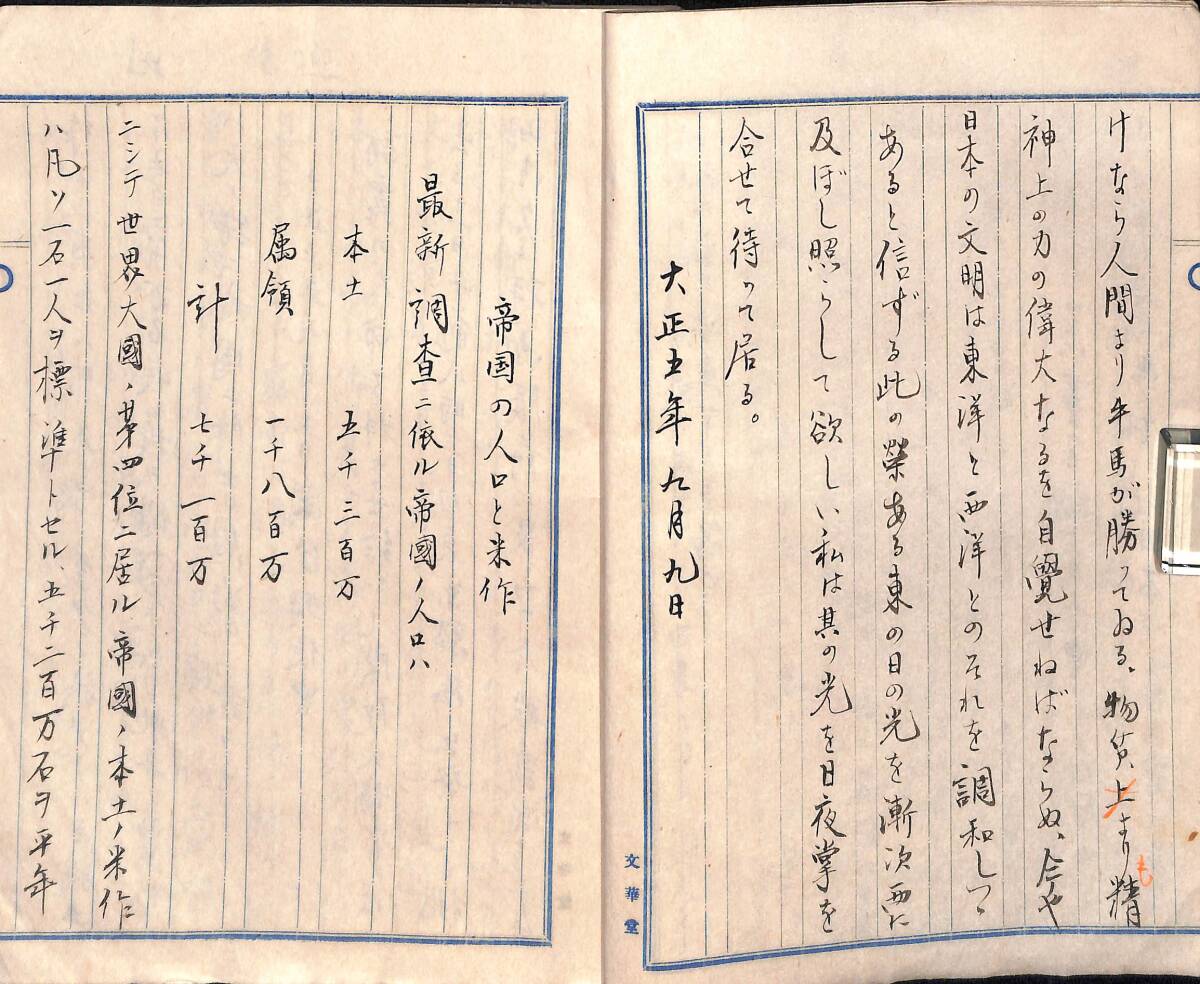 けなら人間より牛馬が勝つてゐる、物質上より精
も
神上の力の偉大なるを自覺せねばならぬ、今や
日本の文明は東洋と西洋とのそれを調和しつゝ
あると信ずる此の榮ある東の日の光を漸次西に
及ぼし照らして欲しい私は其の光を日夜掌を
合せて待つて居る。
大正五年九月九日
文華堂
帝国の人口と米作
最新調査ニ依ル帝國ノ人口ハ
本土 五千三百万
属領 一千八百万
計 七千一百万
ニシテ世界大國ノ第四位ニ居ル帝國ノ本土ノ米作
ハ凡ソ一石一人ヲ標準トセル、五千二百万石ヲ平年